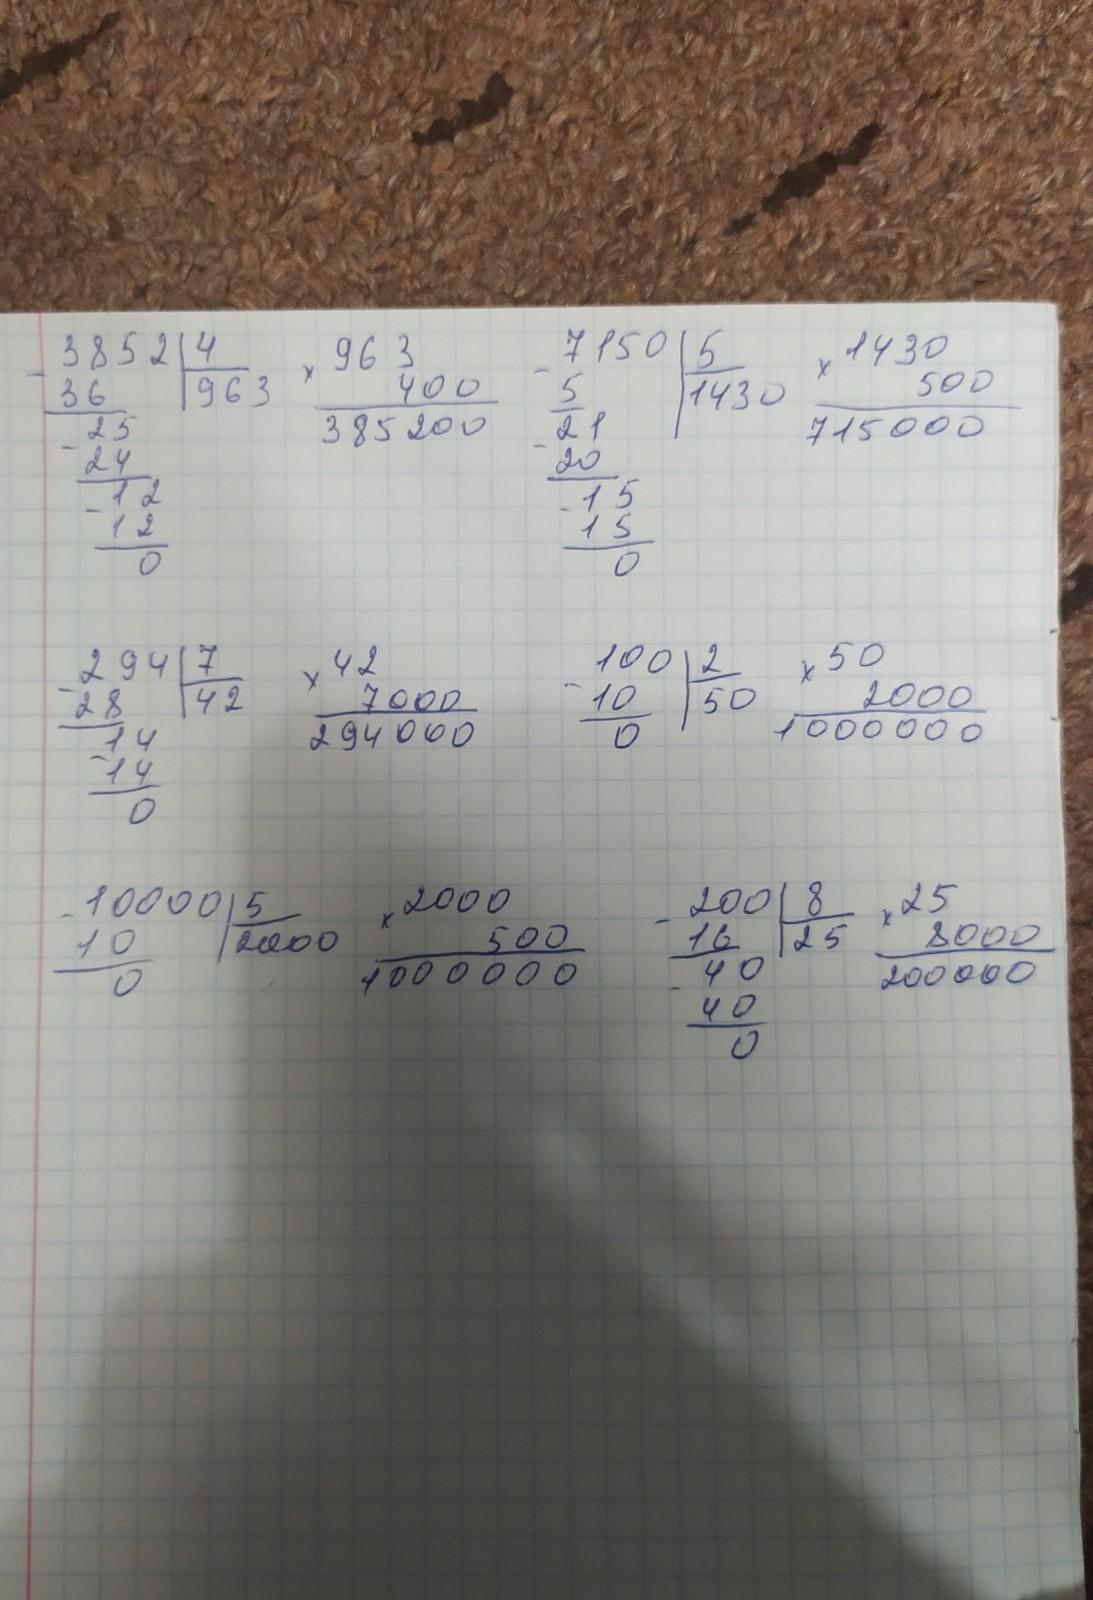 - 3852 | 4 × 963 - 7150 | 5 × 1430
36 963 400 5 1430 500
- 25 385200 - 21 715000
24 20
- 12 - 15
12 15
0 0
- 294 | 7 × 42 - 100 | 2 × 50
28 42 7000 10 50 2000
- 14 294000 0 1000000
14
0
- 10000 | 5 × 2000 - 200 | 8 × 25
10 2000 500 16 25 8000
0 1000000 - 40 200000
40
0